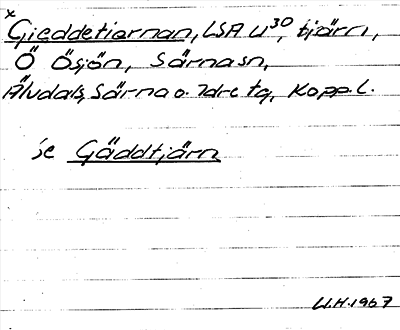 x
Gieddetiarnan, LSA U 30, tjärn,
Ö Ösjön, Särna sn,
Älvdals, Särna o. Idre tg, Kopp. l.
se Gäddtjärn
U.H. 1967